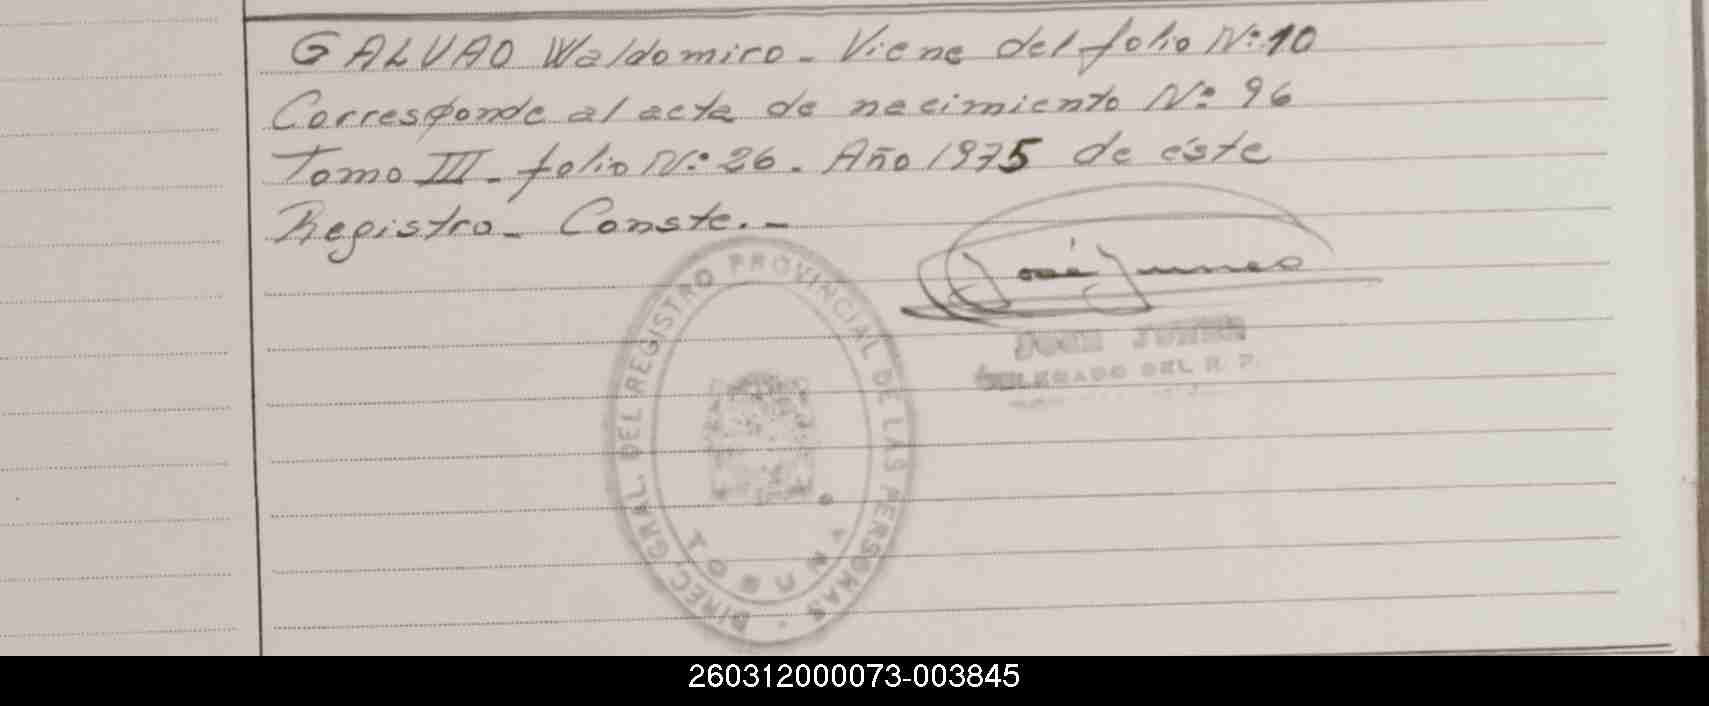 GALVAO Waldomiro. Viene del folio Nº 10
Corresponde al acta de nacimiento Nº 96
Tomo III. folio Nº 26. Año 1975 de éste
Registro. Conste.-
José
DIREC. GRAL. DEL REGISTRO PROVINCIAL DE LAS PERSONAS
DELEGADO DEL R. P.
260312000073-003845